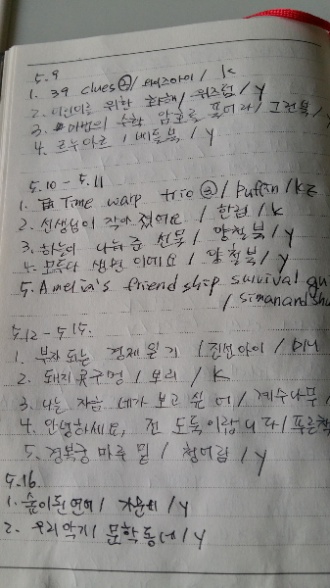 5.9
1. 39 clues② / 와이즈아이 / k
2. 위한 화해 / 위즈덤 / y
3. 마법의 순환 암호를 풀어라 / 그린북 / y
4. 르누아르 / 비룡북 / y
5.10 - 5.11
1. Time warp trio ③ / Puffin / KZ
2. 선생님이 작아졌어요 / 한림 / k
3. 하늘이 나눠준 선물 / 맑철북 / y
4. 모두다 생명이에요 / 양철북 / y
5. Amelia's friendship survival gu
/ simonandshu
5.12 - 5.15.
1. 부자 되는 경제 읽기 / 진선아이 /
2. 돼지 콧구멍 / 보리 / K
3. 나는 지금 네가 보고 싶어 / 계수나무 /
4. 안녕하세요, 전 도둑이랍니다 / 푸른책
5. 경복궁 마루 밑 / 청어람 / y
5.16.
1. 종이로된 연어 / 가문비 / y
2. 우리악기 / 문학동네 / y